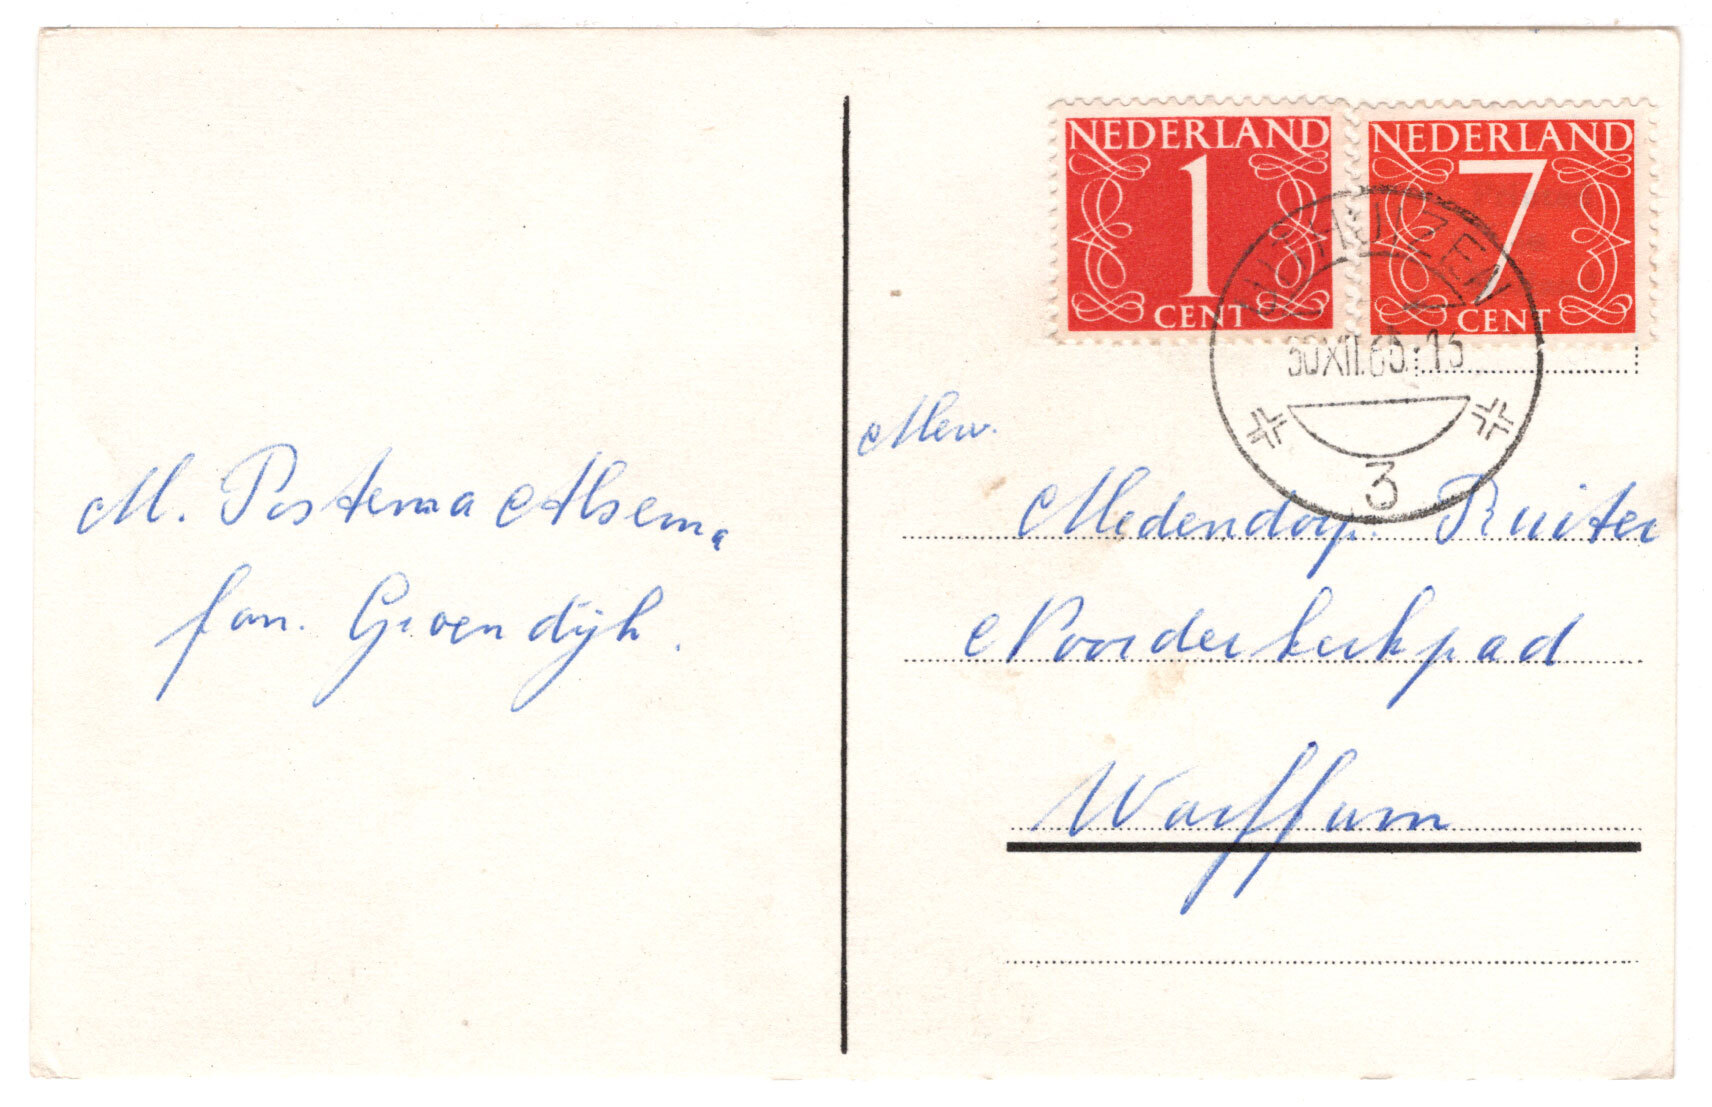 M. Postema Alsema
fam. Groendijk.
NEDERLAND
1
CENT
NEDERLAND
7
CENT
30XII.65.-13
3
Mew.
Medendorp. Ruiter
Noorderkerkpad
Warffum